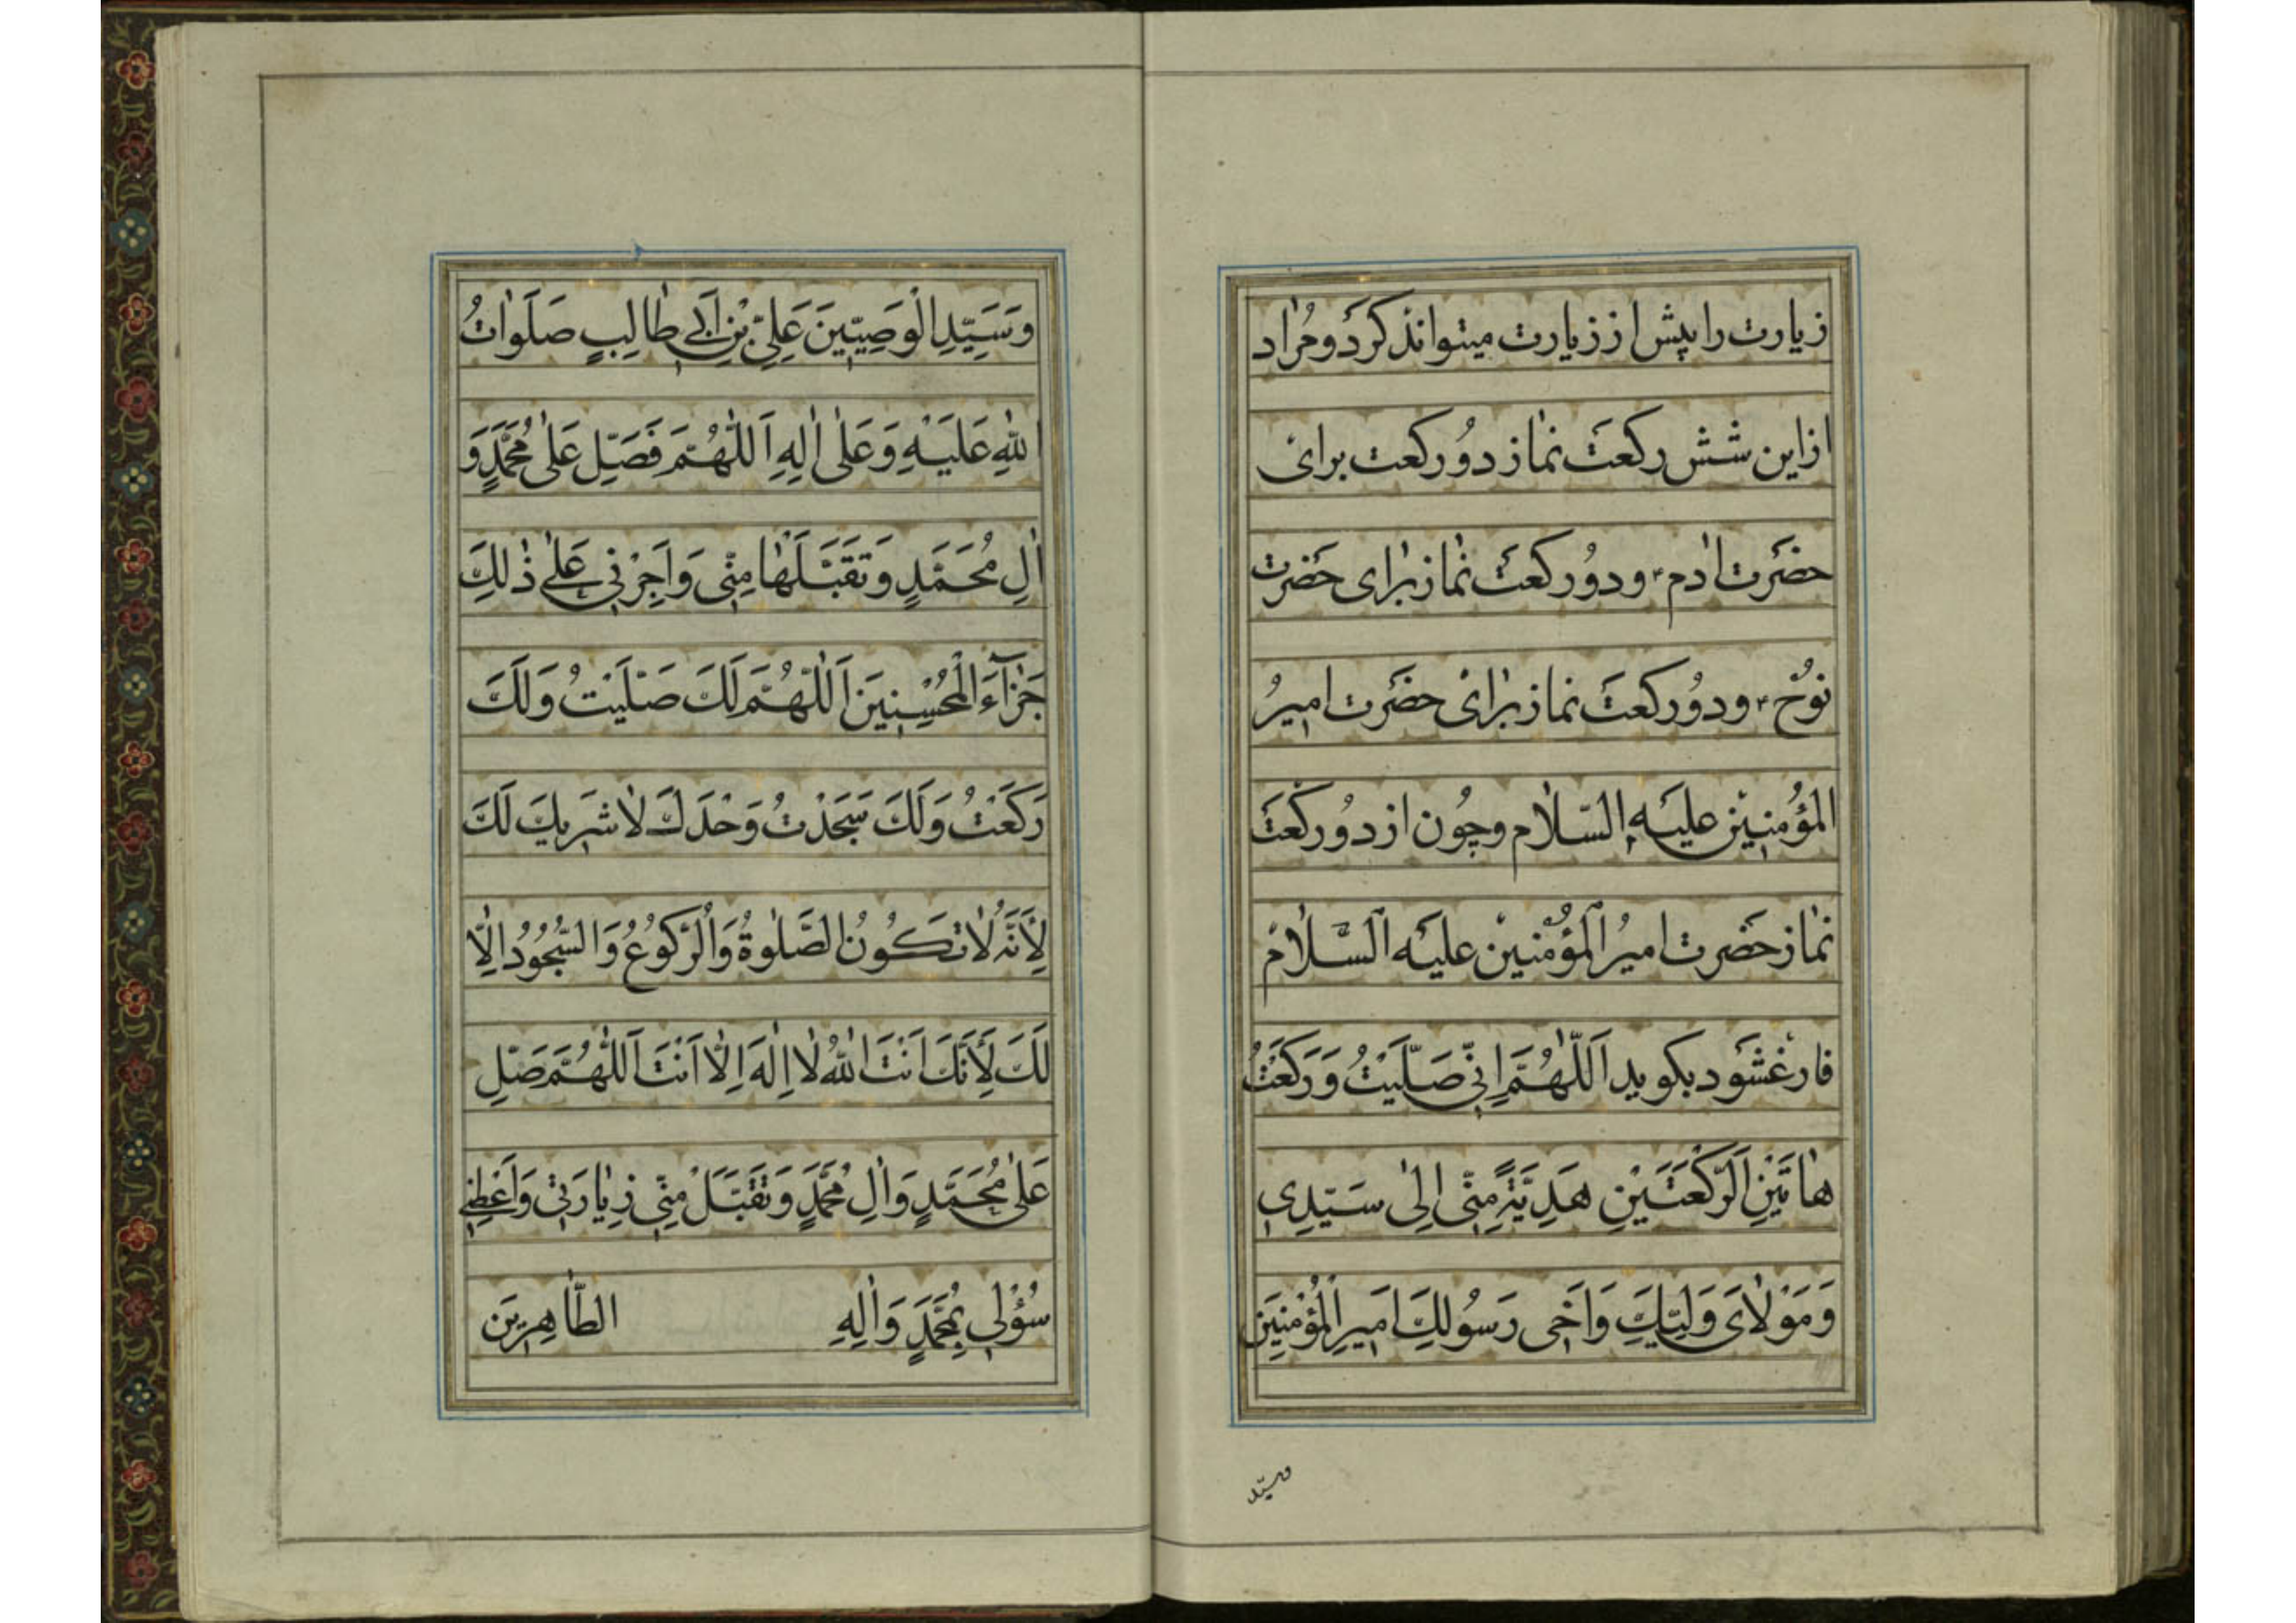 زیارت را پیش از زیارت میتواند کرد و مُراد
از این شش رکعت نماز دو رکعت برای
حضرت ادم ع و دو رکعت نماز برای حضرت
نوح ع و دو رکعت نماز برای حضرت امیر
المؤمنین علیه السّلام و چون از دو رکعت
نماز حضرت امیر المؤمنین علیه السّلام
فارغ شود بکوید اَللّٰهُمَّ اِنّی صَلَّیْتُ وَ رَکَعْتُ
هٰاتَیْنِ الرَّکْعَتَیْنِ هَدِیَّةً مِنّی اِلٰی سَیِّدِی
وَ مَوْلاٰیَ وَلِیِّکَ وَ اَخِی رَسُولِکَ اَمیرِ الْمُؤْمِنینَ
و سیّد
وَ سَیِّدِ الْوَصِیّینَ عَلِیِّ بْنِ اَبی طٰالِبٍ صَلَوٰاتُ
اللّٰهِ عَلَیْهِ وَ عَلٰی اٰلِهِ اَللّٰهُمَّ فَصَلِّ عَلٰی مُحَمَّدٍ وَ
اٰلِ مُحَمَّدٍ وَ تَقَبَّلْهٰا مِنّی وَ اَجِرْنی عَلٰی ذٰلِکَ
جَزٰآءَ الْمُحْسِنینَ اَللّٰهُمَّ لَکَ صَلَّیْتُ وَ لَکَ
رَکَعْتُ وَ لَکَ سَجَدْتُ وَحْدَکَ لاٰ شَریکَ لَکَ
لِأَنَّهُ لاٰ تَکُونُ الصَّلٰوةُ وَ الرُّکُوعُ وَ السُّجُودُ اِلّاٰ
لَکَ لِأَنَّکَ اَنْتَ اللّٰهُ لاٰ اِلٰهَ اِلّاٰ اَنْتَ اَللّٰهُمَّ صَلِّ
عَلٰی مُحَمَّدٍ وَ اٰلِ مُحَمَّدٍ وَ تَقَبَّلْ مِنّی زِیٰارَتی وَ اَعْطِنی
سُؤْلی بِمُحَمَّدٍ وَ اٰلِهِ الطّٰاهِرینَ